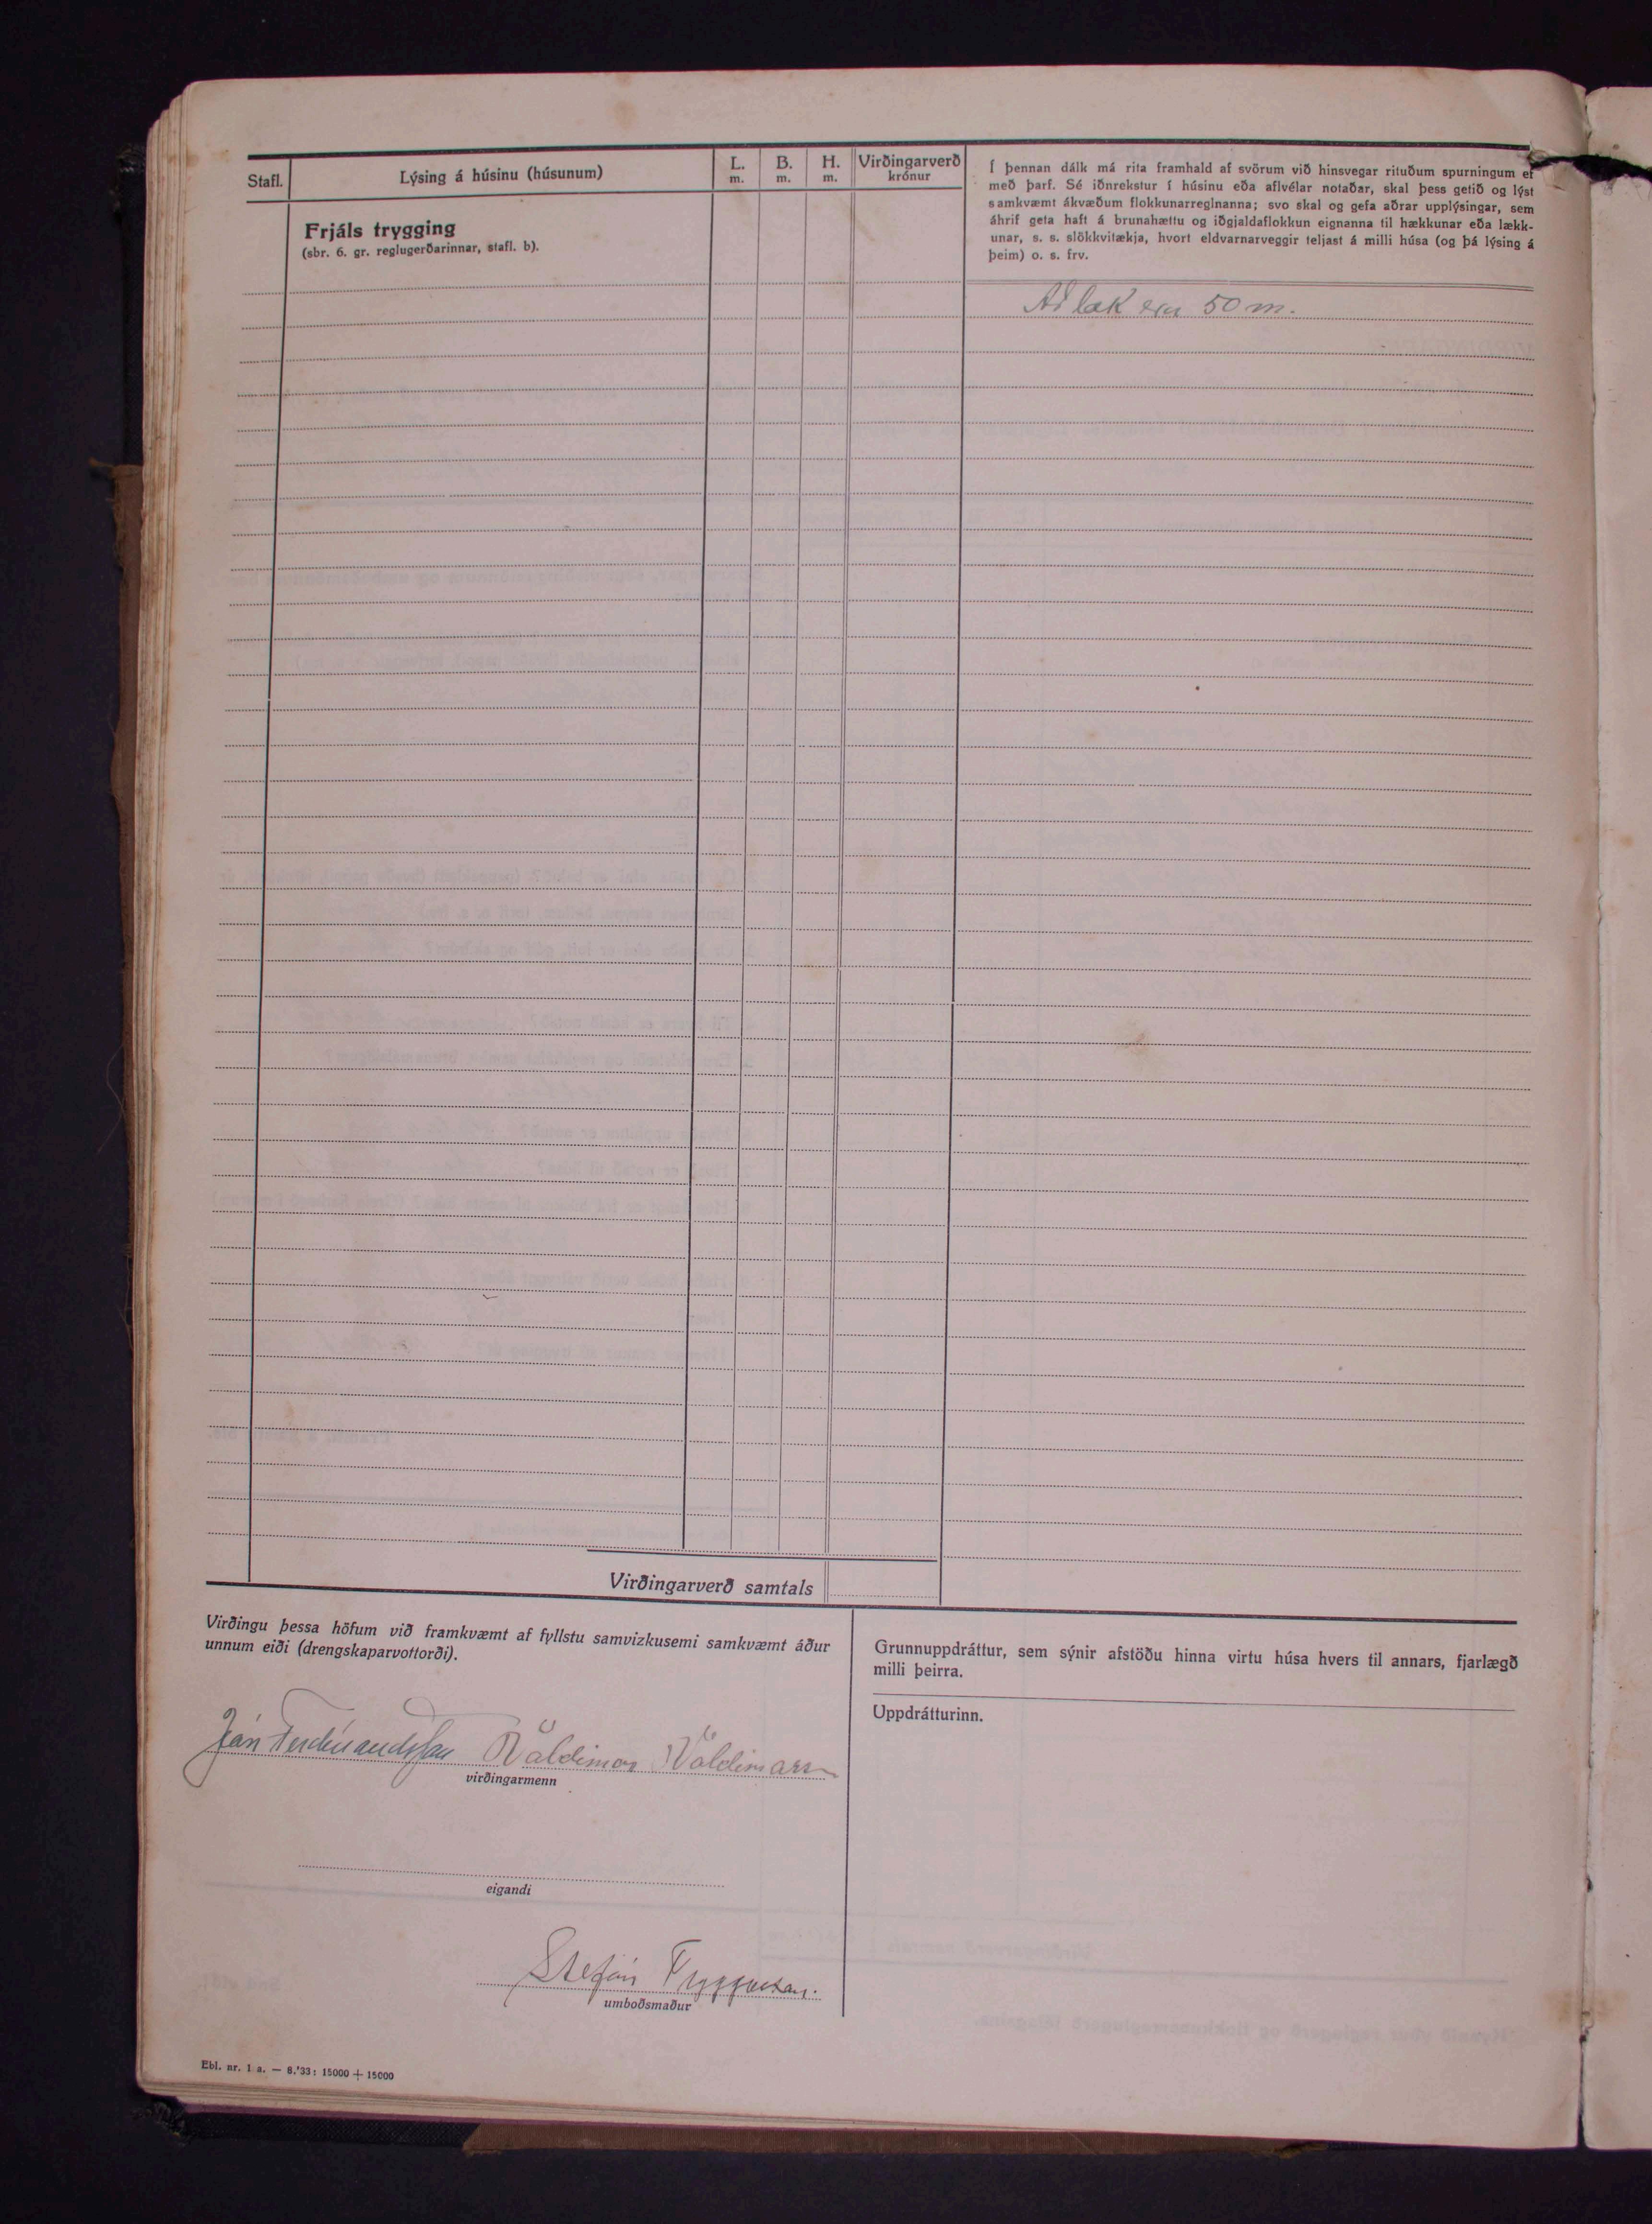 Stafl.
Lýsing á húsinu (húsunum)
L.
m.
B.
m.
H.
m.
Virðingarverð
krónur
Í þennan dálk má rita framhald af svörum við hinsvegar rituðum spurningum ef
með þarf. Sé iðnrekstur í húsinu eða aflvélar notaðar, skal þess getið og lýst
samkvæmt ákvæðum flokkunarreglnanna; svo skal og gefa aðrar upplýsingar, sem
áhrif geta haft á brunahættu og iðgjaldaflokkun eignanna til hækkunar eða lækk-
unar, s. s. slökkvitækja, hvort eldvarnarveggir teljast á milli húsa (og þá lýsing á
þeim) o. s. frv.
Frjáls trygging
(sbr. 6. gr. reglugerðarinnar, stafl. b).
Að læk eru 50 m.
Virðingarverð samtals
Virðingu þessa höfum við framkvæmt af fyllstu samvizkusemi samkvæmt áður
unnum eiði (drengskaparvottorði).
Jón Ferdínandsson Valdimar Valdimarss
virðingarmenn
eigandi
Stefán Tryggvason.
umboðsmaður
Grunnuppdráttur, sem sýnir afstöðu hinna virtu húsa hvers til annars, fjarlægð
milli þeirra.
Uppdrátturinn.
Ebl. nr. 1 a. — 8.'33: 15000 + 15000